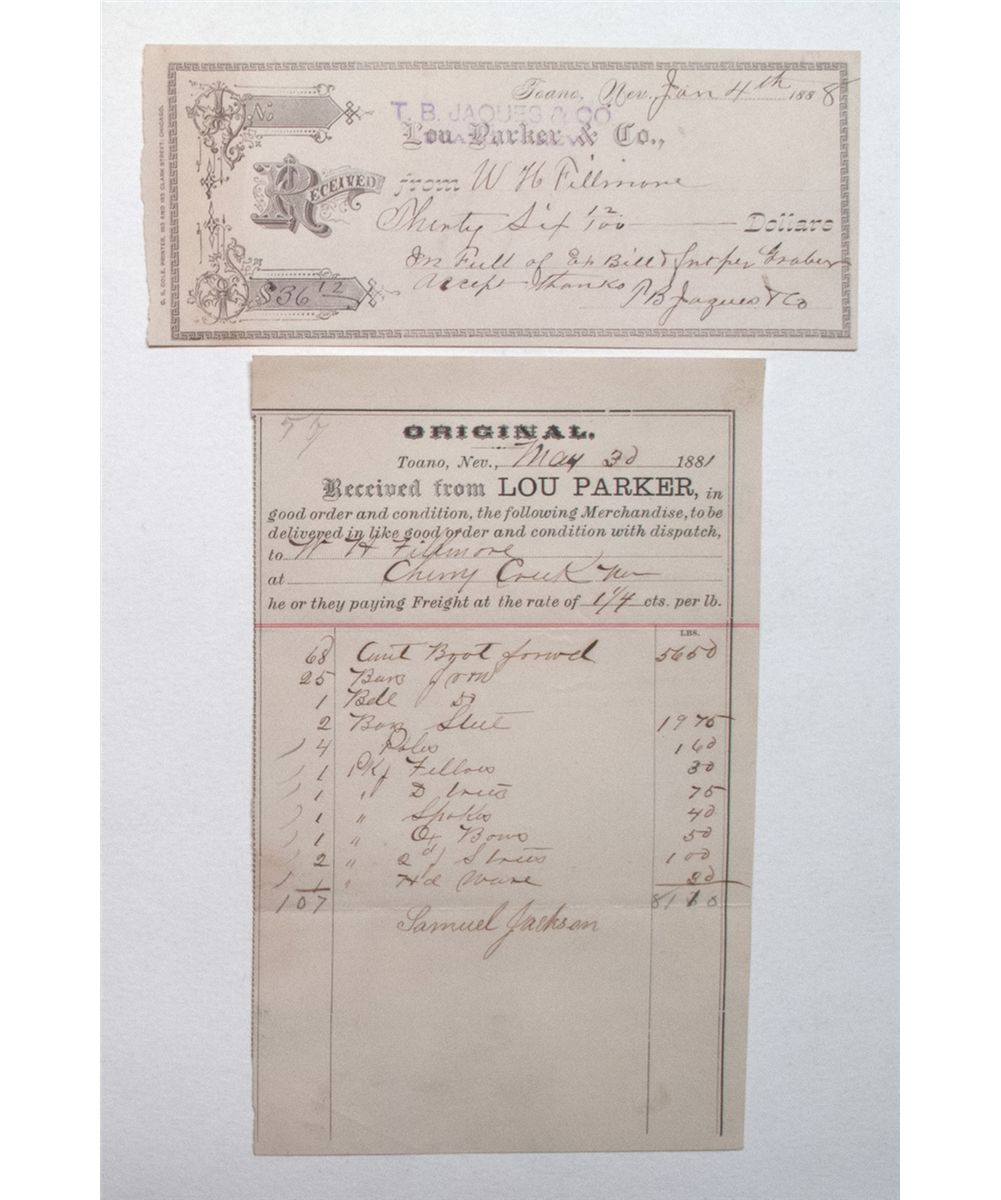 Toano, Nev. Jan 4th 1888
No
T. B. JAQUES & CO
Lou Parker & Co.,
RECEIVED
from W H Fillmore
Thirty Six 12/100 Dollars
In Full of Ex Bill & Int per
$36 12
Accept Thanks T B Jaques & Co
G. S. COLE, PRINTER, CLARK STREET, CHICAGO.
57
ORIGINAL.
Toano, Nev., May 30 1881
Received from LOU PARKER, in
good order and condition, the following Merchandise, to be
delivered in like good order and condition with dispatch,
to W H Fillmore
at Cherry Creek Nev
he or they paying Freight at the rate of 1 1/4 cts. per lb.
LBS.
68 Amt Bgot forwd 5650
25 Bars Iron
1 Bdl Do
2 Bars Steel 1975
4 Poles 160
1 Pkg Fellows 30
1 " D trees 75
1 " Spokes 40
1 " Ox Bows 50
2 " S trees 100
1 " Hd Ware
107 81
Samuel Jackson